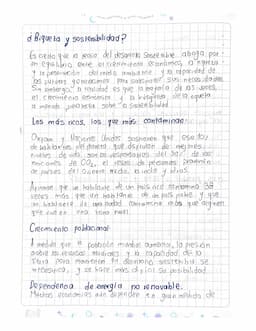 ¿Riqueza y sostenibilidad?
Es cierto que la idea del desarrollo sostenible aboga por
un equilibrio entre el crecimiento económico, la riqueza
y la preservación del medio ambiente y la capacidad de
las futuras generaciones para satisfacer sus necesidades.
Sin embargo, la realidad es que la mayoría de las veces,
el crecimiento económico y la búsqueda de la riqueza
a menudo prevalece sobre la sostenibilidad.
Los más ricos, los que más contaminan
Oxfam y Naciones Unidas sostienen que
de habitantes del planeta que disfrutan de mejores
niveles de vida, son los responsables del de
de CO2, el resto de
de países del
que un habitante de un país rico contamina 38
veces más que un habitante de un país pobre y que
un habitante de una ciudad contamina más que alguien
que vive en una zona rural
Crecimiento poblacional
A medida que la población mundial aumenta, la presión
sobre los recursos naturales y la capacidad de la
Tierra para mantener el desarrollo sostenible se
intensifica, y se hace más difícil su posibilidad.
Dependencia de energía no renovable.
Muchas economías aún dependen en gran medida de